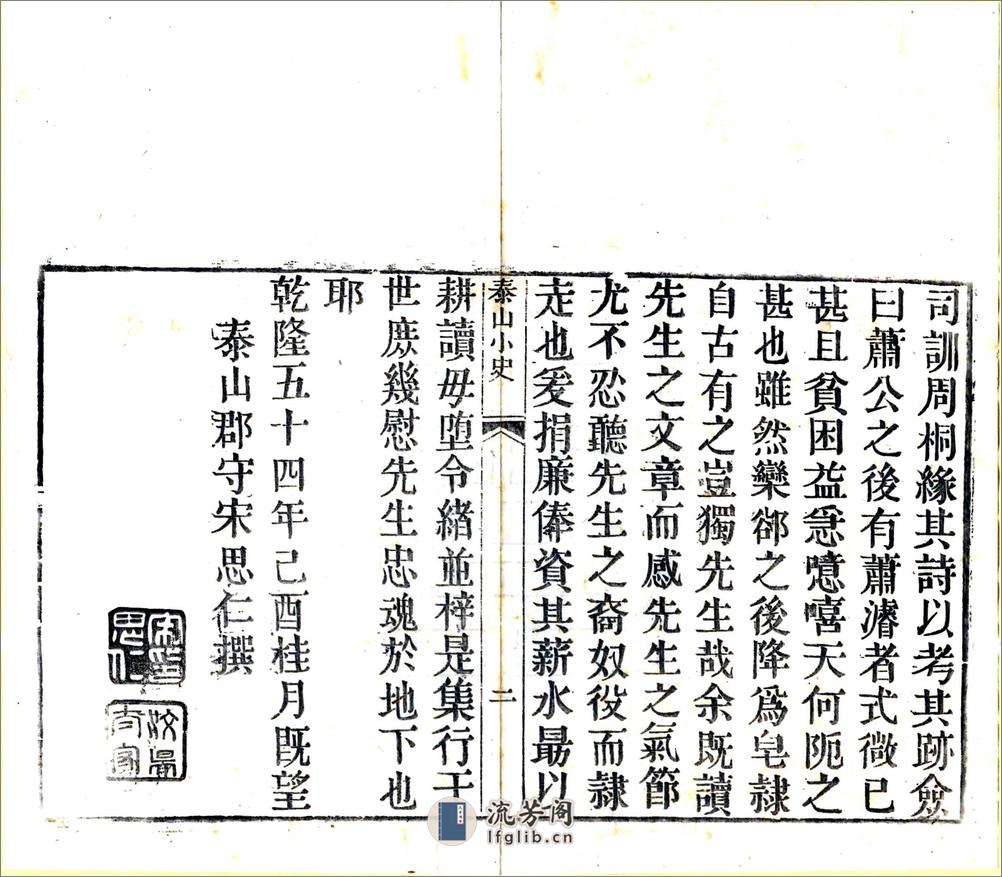 司訓周桐緣其詩以考其跡僉
曰蕭公之後有蕭濬者式微已
甚且貧困益急噫嘻天何阨之
甚也雖然欒郤之後降爲皂隷
自古有之豈獨先生哉余既讀
先生之文章而感先生之氣節
尤不忍聽先生之裔奴役而隷
走也爰捐廉俸資其薪水朂以
泰山小史
二
耕讀毋墮令緒並梓是集行于
世庶幾慰先生忠魂於地下也
耶
乾隆五十四年己酉桂月既望
泰山郡守宋思仁撰
宋印
思仁
流芳阁
lfglib.cn